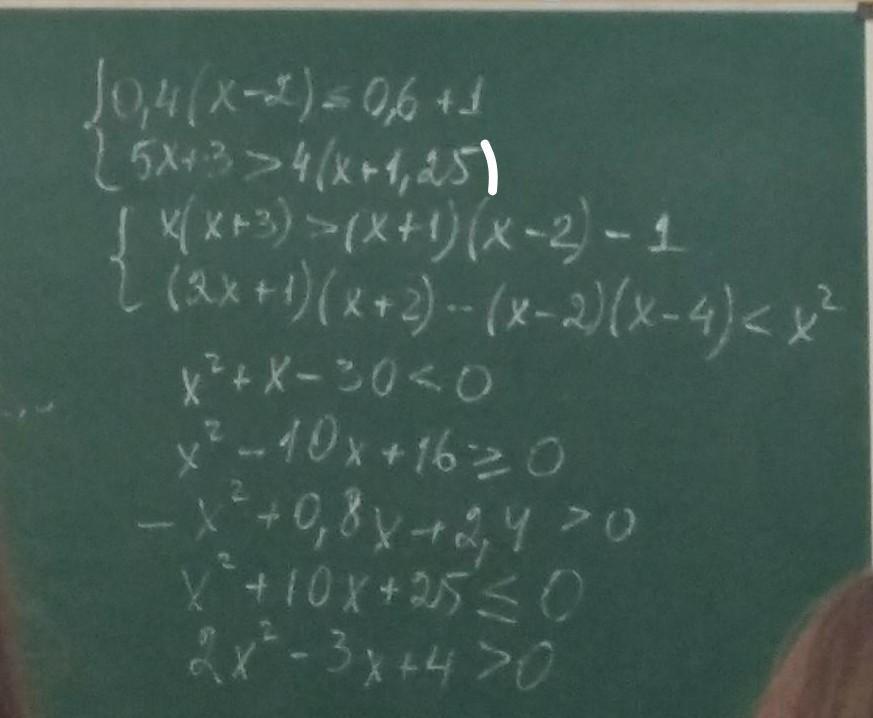 0,4(x-2)≤0,6+1
5x+3>4(x+1,25)
x(x+3)>(x+1)(x-2)-1
(2x+1)(x+2)-(x-2)(x-4)<x²
x²+x-30<0
x²-10x+16≥0
-x²+0,8x+2,4>0
x²+10x+25≤0
2x²-3x+4>0